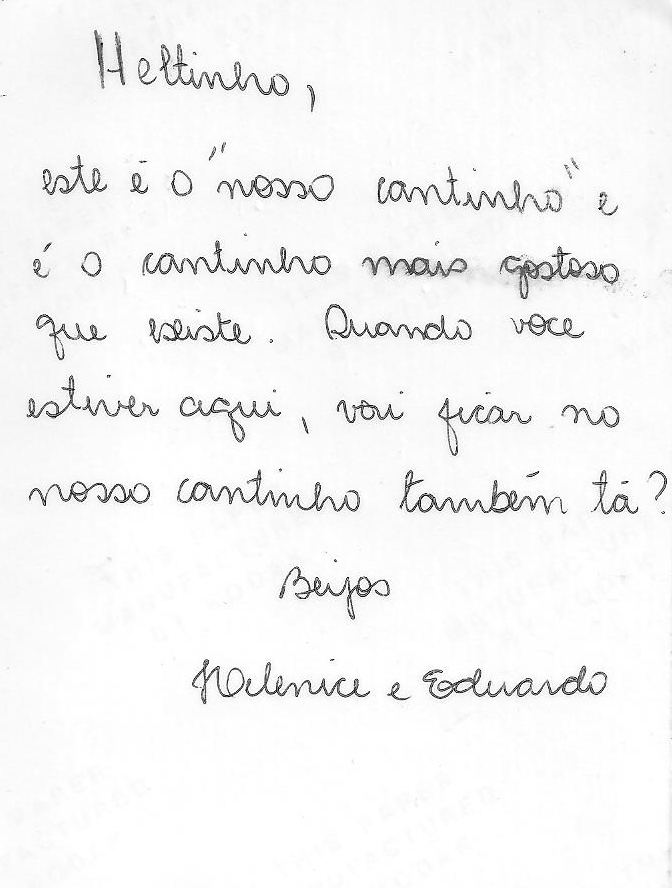 Heltinho,
este é o "nosso cantinho" e
é o cantinho mais gostoso
que existe. Quando voce
estiver aqui, vai ficar no
nosso cantinho também tá?
Beijos
Helenice e Eduardo